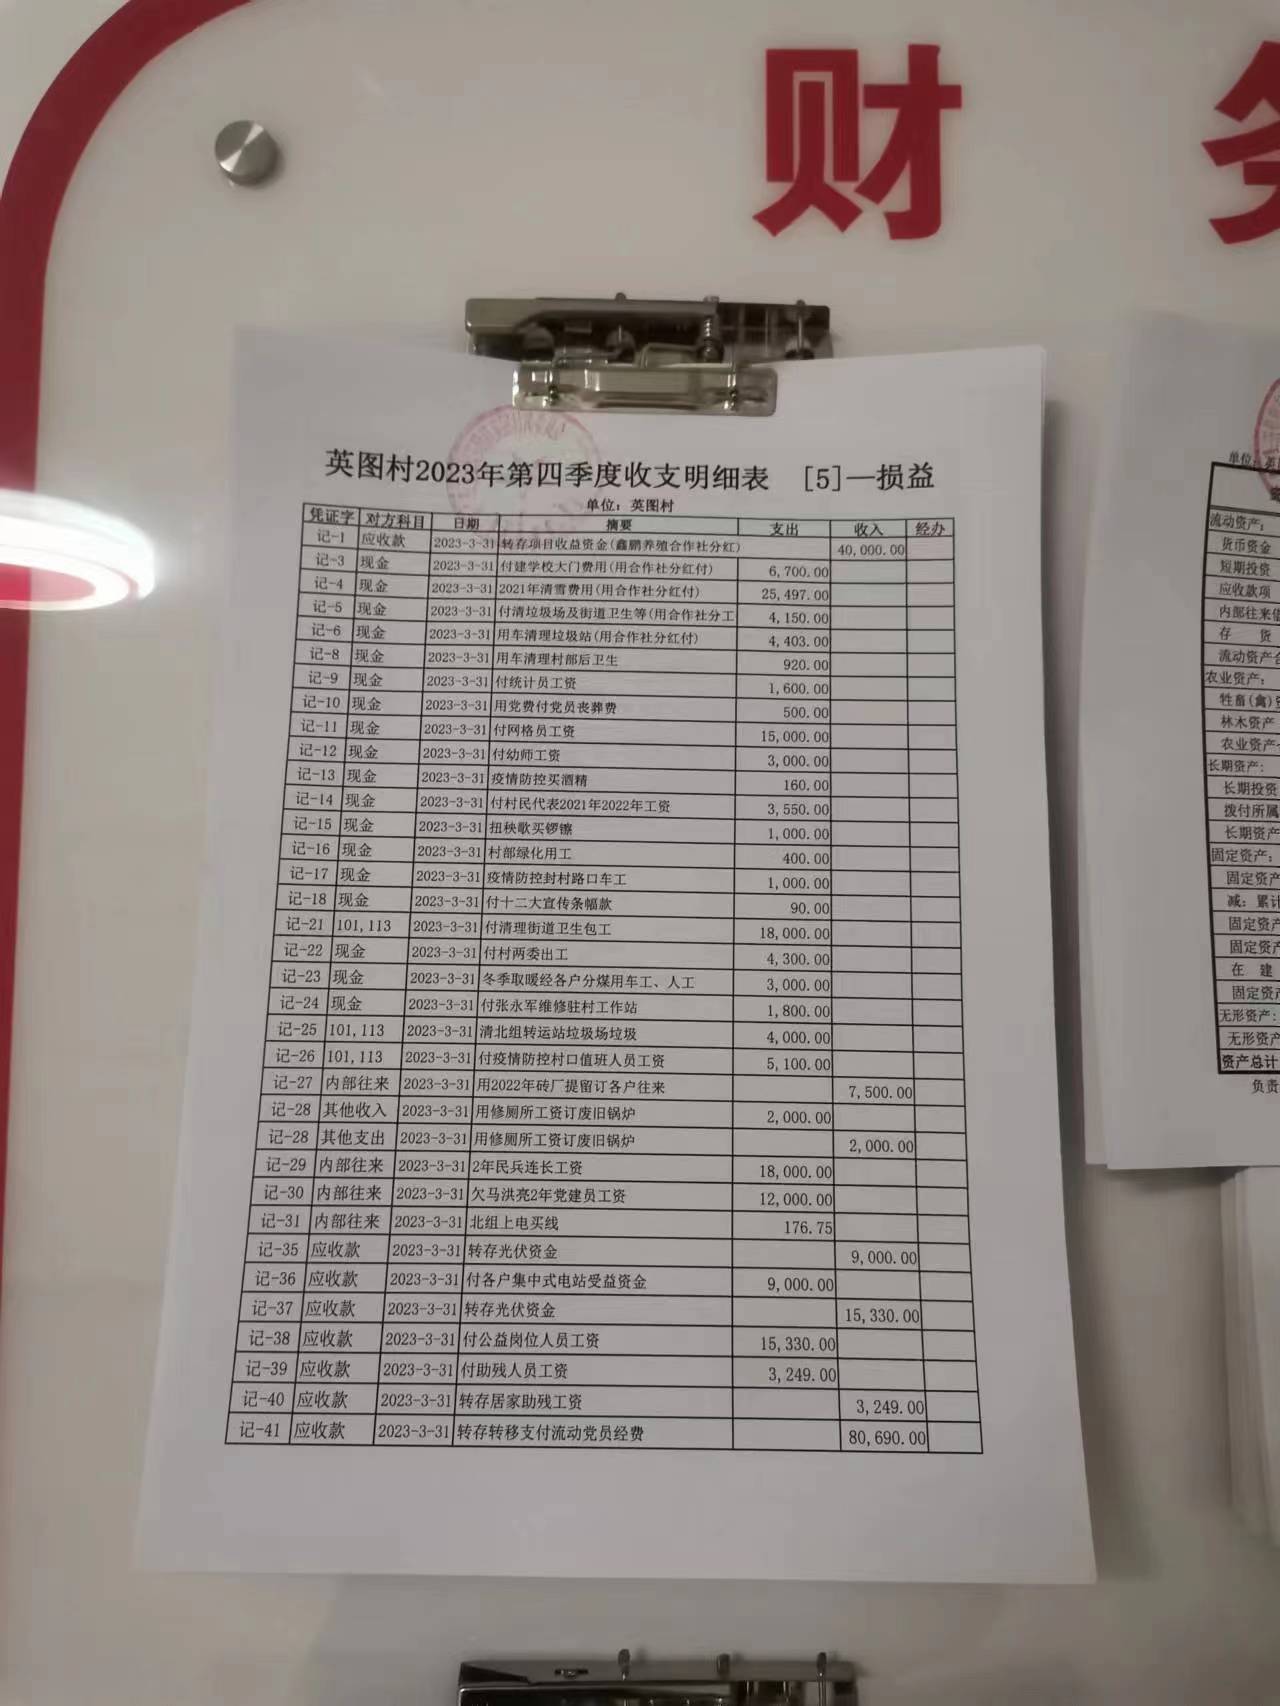 财
英图村2023年第四季度收支明细表 [5]—损益
单位：英图村
凭证字 对方科目 日期 摘要 支出 收入 经办
记-1 应收款 2023-3-31 转存项目收益资金(鑫鹏养殖合作社分红) 40,000.00
记-3 现金 2023-3-31 付建学校大门费用(用合作社分红付) 6,700.00
记-4 现金 2023-3-31 2021年清雪费用(用合作社分红付) 25,497.00
记-5 现金 2023-3-31 付清垃圾场及街道卫生等(用合作社分工 4,150.00
记-6 现金 2023-3-31 用车清理垃圾站(用合作社分红付) 4,403.00
记-8 现金 2023-3-31 用车清理村部后卫生 920.00
记-9 现金 2023-3-31 付统计员工资 1,600.00
记-10 现金 2023-3-31 用党费付党员丧葬费 500.00
记-11 现金 2023-3-31 付网格员工资 15,000.00
记-12 现金 2023-3-31 付幼师工资 3,000.00
记-13 现金 2023-3-31 疫情防控买酒精 160.00
记-14 现金 2023-3-31 付村民代表2021年2022年工资 3,550.00
记-15 现金 2023-3-31 扭秧歌买锣镲 1,000.00
记-16 现金 2023-3-31 村部绿化用工 400.00
记-17 现金 2023-3-31 疫情防控封村路口车工 1,000.00
记-18 现金 2023-3-31 付十二大宣传条幅款 90.00
记-21 101,113 2023-3-31 付清理街道卫生包工 18,000.00
记-22 现金 2023-3-31 付村两委出工 4,300.00
记-23 现金 2023-3-31 冬季取暖经各户分煤用车工、人工 3,000.00
记-24 现金 2023-3-31 付张永军维修驻村工作站 1,800.00
记-25 101,113 2023-3-31 清北组转运站垃圾场垃圾 4,000.00
记-26 101,113 2023-3-31 付疫情防控村口值班人员工资 5,100.00
记-27 内部往来 2023-3-31 用2022年砖厂提留订各户往来 7,500.00
记-28 其他收入 2023-3-31 用修厕所工资订废旧锅炉 2,000.00
记-28 其他支出 2023-3-31 用修厕所工资订废旧锅炉 2,000.00
记-29 内部往来 2023-3-31 2年民兵连长工资 18,000.00
记-30 内部往来 2023-3-31 欠马洪亮2年党建员工资 12,000.00
记-31 内部往来 2023-3-31 北组上电买线 176.75
记-35 应收款 2023-3-31 转存光伏资金 9,000.00
记-36 应收款 2023-3-31 付各户集中式电站受益资金 9,000.00
记-37 应收款 2023-3-31 转存光伏资金 15,330.00
记-38 应收款 2023-3-31 付公益岗位人员工资 15,330.00
记-39 应收款 2023-3-31 付助残人员工资 3,249.00
记-40 应收款 2023-3-31 转存居家助残工资 3,249.00
记-41 应收款 2023-3-31 转存转移支付流动党员经费 80,690.00
单位：
流动资产：
货币资金
短期投资
应收款项
内部往来
存 货
流动资产
农业资产：
牲畜(禽)
林木资产
农业资产
长期资产：
长期投资
拨付所属
长期资产
固定资产：
固定资产
减：累计
固定资产
固定资产
在 建
固定资产
无形资产：
无形资产
资产总计
负责